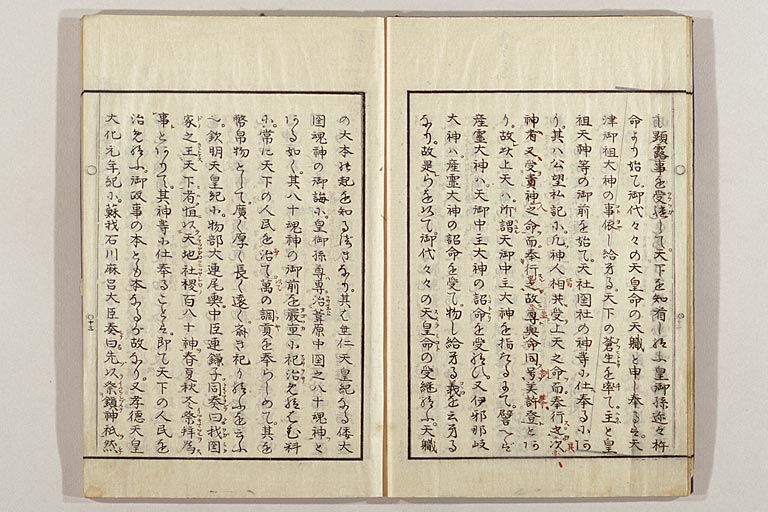 し顕露事を受持して天下を知看し給ふ皇御孫迩々杵
命より始て御代々々の天皇命の天職と申し奉るは天
津御祖大神の事依し給へる天下の蒼生を率て主と皇
祖天神等の御前を始て天社国社の神等に仕奉るにあ
り其ハ公望私記に凡神人相共受上天之命而奉行之次
神者又受貴神之命而奉行是故尊與命同号美許登とあ
り故以上天ハ所謂天御中主大神を指なるにて譬へは
産霊大神ハ天御中主大神の詔命を受給ひ又伊邪那岐
大神ハ産霊大神の詔命を受て物し給へる義を云へる
なり故是らを以て御代々々の天皇命の受継給ふ天職
の大本の起を知る清なり其ハ垂仁天皇紀なる倭大
国魂神の御誨に皇御孫尊専治葦原中国之八十魂神と
ある如く其八十魂神の御前を厳重に祀治め給はむ料
に常に天下の人民を治て萬の調貢を奉らしめて其を
幣帛物として廣く厚く長く遠く斎き祀り給ふを云ふ
欽明天皇紀に物部大連尾輿中臣連鎌子同奏曰我国
家之王天下者恒以天地社稷百八十神春夏秋冬祭拝為
事とありて其神等に仕奉ることを即て天下の人民を
治め給ふ御政事の本とも本なるか故なり又孝徳天皇
大化元年紀に蘇我石川麻呂大臣奏曰先以祭鎮神祇然